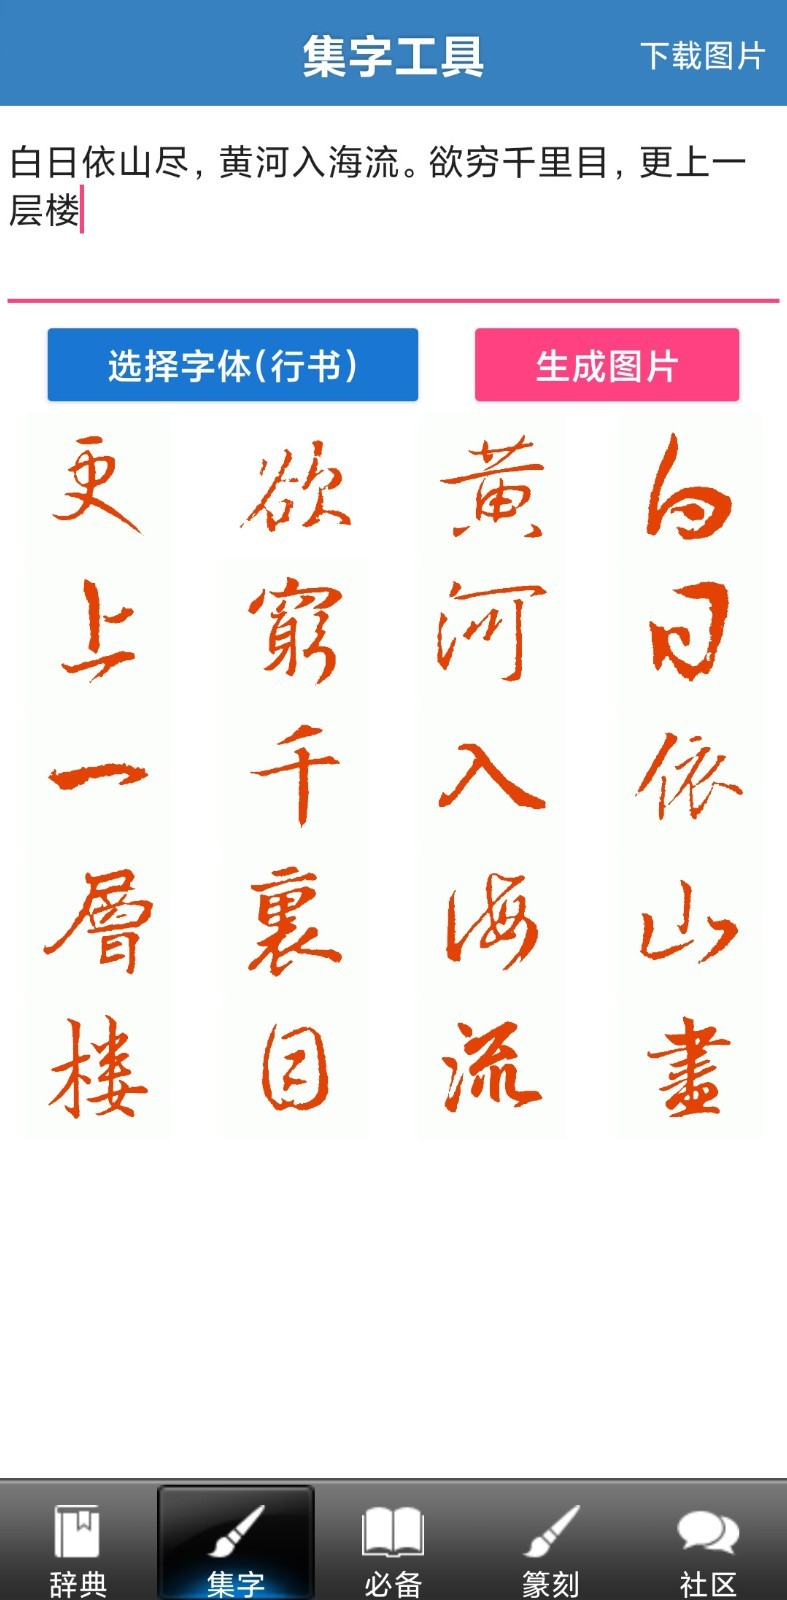 集字工具
下载图片
白日依山尽，黄河入海流。欲穷千里目，更上一
层楼
选择字体(行书)
生成图片
白日依山盡
黃河入海流
欲窮千裏目
更上一層楼
辞典
集字
必备
篆刻
社区